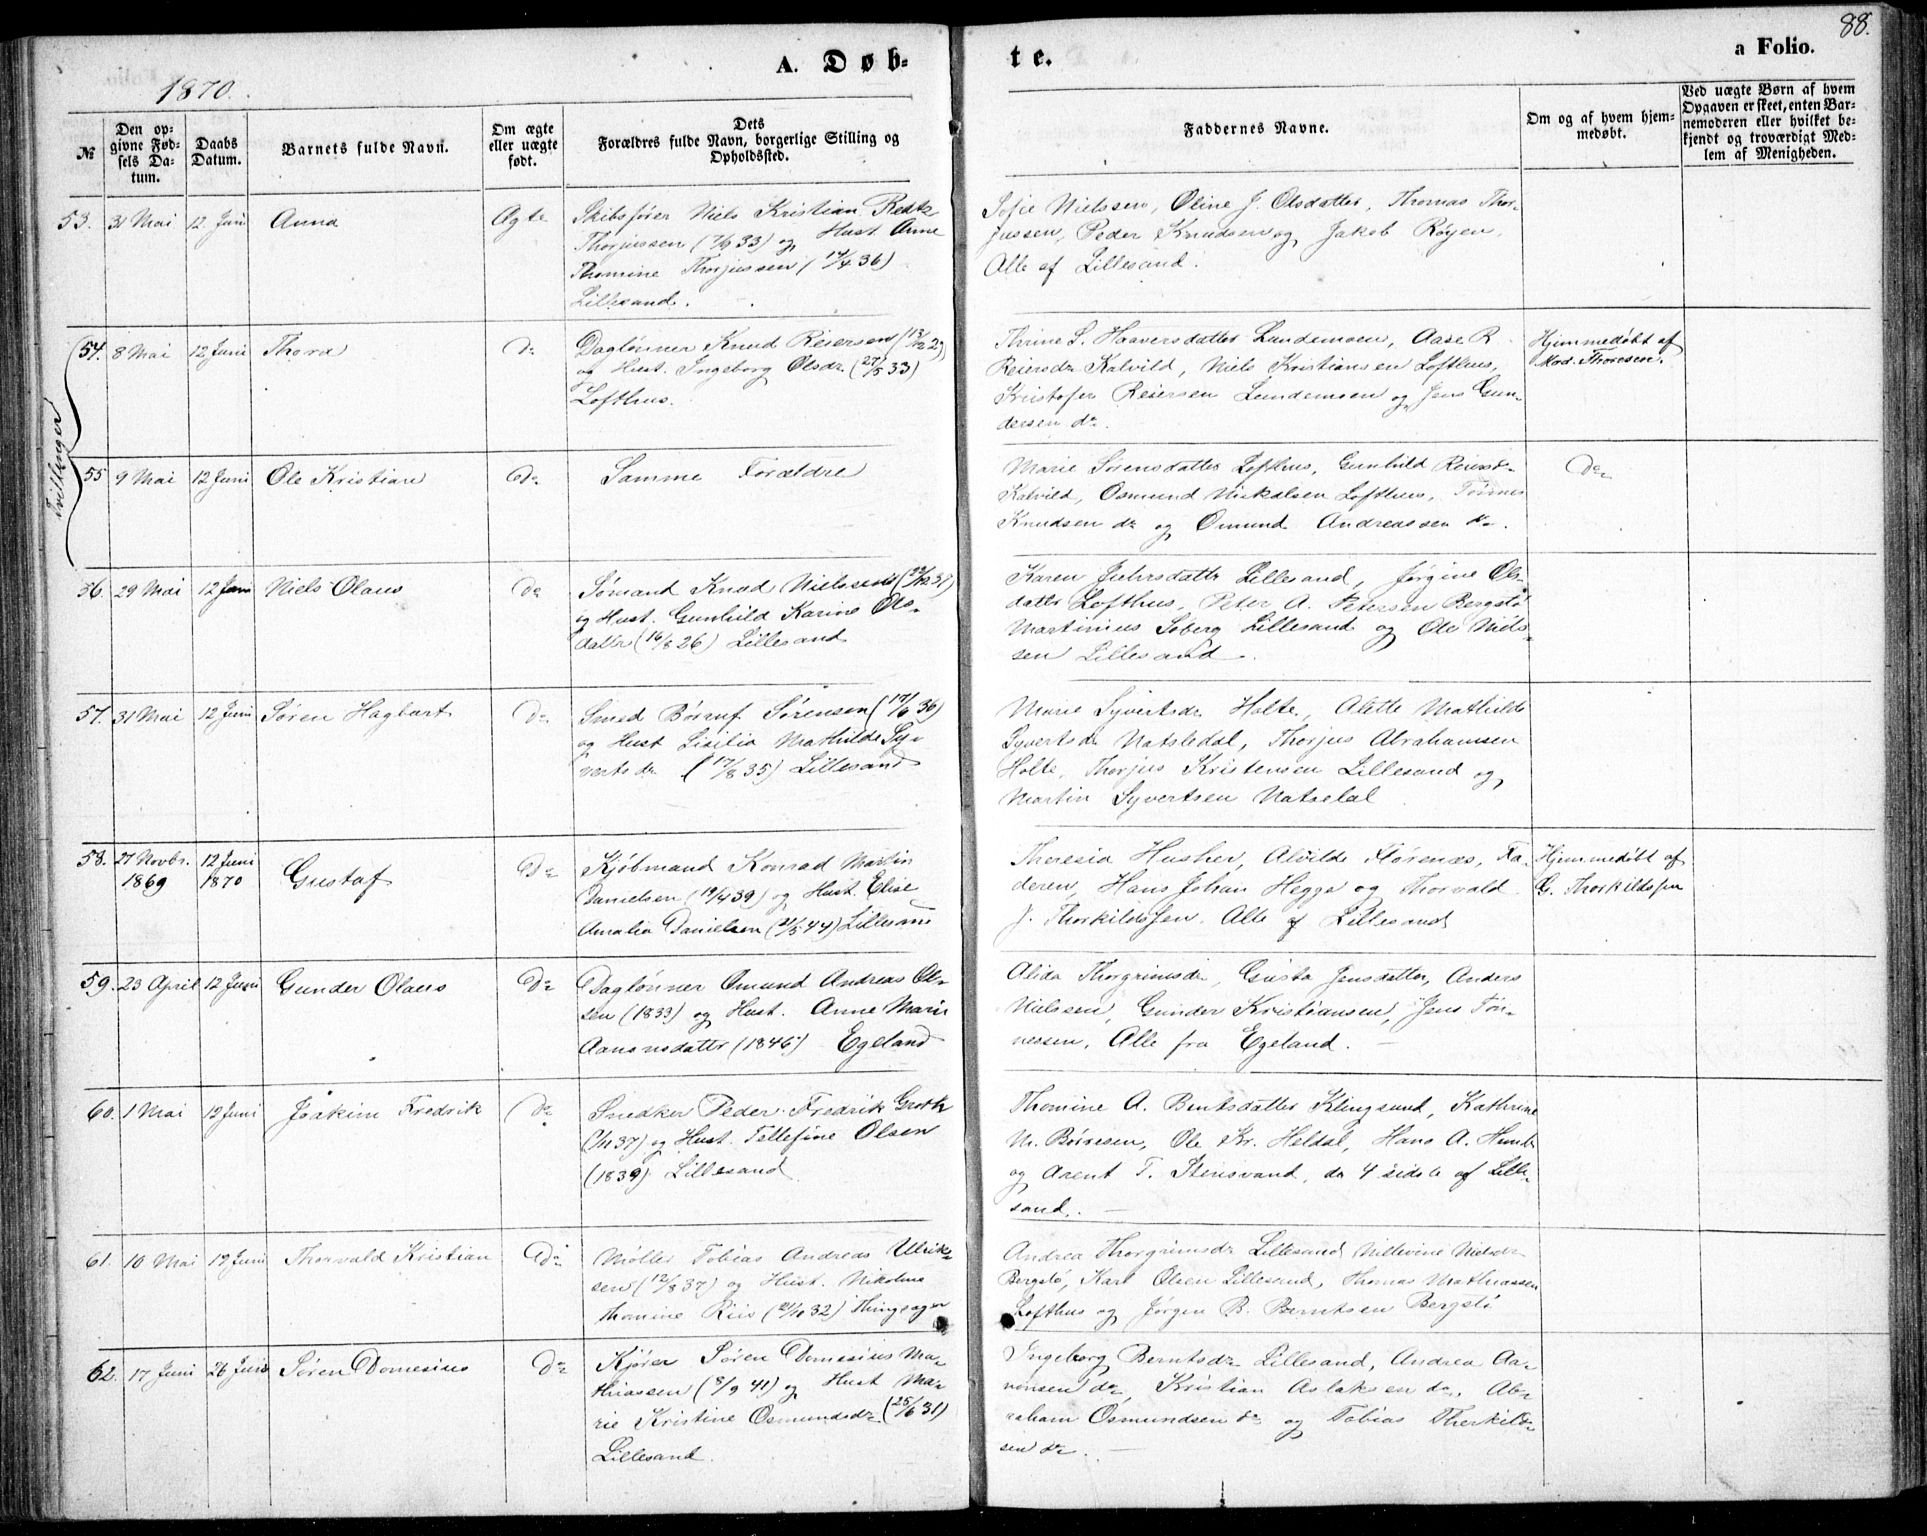 88.
1870.
A. Døb-
te.
a Folio.
№
Den op-
givne Fød-
sels Da-
tum.
Daabs
Datum.
Barnets fulde Navn.
Om ægte
eller uægte
født.
Dets
Forældres fulde Navn, borgerlige Stilling og
Opholdssted.
Faddernes Navne.
Om og af hvem hjem-
medøbt.
Ved uægte Børn af hvem
Opgaven er skeet, enten Bar-
nemoderen eller hvilket be-
kjendt og troværdigt Med-
lem af Menigheden.
53. 31 Mai 12 Juni Anna Ægte
Skibsfører Niels Kristian
Thorjussen (7/9 33) og Hust. Anne
Thomine Thorjussen (17/4 36)
Lillesand.
Sofie Nielssen, Oline J. Olsdatter, Thomas Thor-
jussen, Peder Knudsen og Jakob Røyen.
Alle af Lillesand.
Tvillinger
54. 8 Mai 12 Juni Thora do
Daglønner Knud Reiersen (13/12 29)
og Hust. Ingeborg Olsdr (27/5 33)
Lofthus.
Thrine S. Haaversdatter Lundemoen, Aase R.
Reiersdr Kalvild, Niels Kristiansen Lofthus,
Kristofer Reiersen Lundemoen og Jens Gun-
dersen do.
Hjemmedøbt af
Mad. Thoresen.
55 9 Mai 12 Juni Ole Kristian do
Samme Forældre
Marie Sørensdatter Lofthus, Gunhild Reiersdr
Kalvild, Osmund Nickolsen Lofthus, Tønnes
Knudsen do og Omund Andreassen do.
do
56. 29 Mai 12 Juni Niels Olaus do
Sømand Knud Nielssen (22/12 37)
og Hust. Gunhild Karine Ols-
datter (16/8 26) Lillesand
Karen Juhrsdattr Lillesand, Jørgine Ols-
datter Lofthus, Peter A. Petersen Bergstø
Martinius Soberg Lillesand og Ole Niels-
sen Lillesand.
57. 31 Mai 12 Juni Søren Hagbart do
Smed Børruf Sørensen (19/9 36)
og Hust Sisilia Mathilde Sy-
vertsdr (17/8 35) Lillesand
Marie Syvertsdr Holte, Alette Mathilde
Syvertsdr Natsledal, Thorjus Abrahamsen
Holte, Thorjus Kristensen Lillesand og
Martin Syvertsen Natseldal
58. 27 Novbr. 12 Juni
1869 1870 Gustaf do
Kjøbmand Konrad Martin
Danielsen (19/4 39) og Hust. Elise
Amalia Danielsen (21/5 44) Lillesand
Theresia Husher, Alvilde Størenæs, Fa-
deren, Hans Johan Hegge og Thorvald
J. Thorkildssen. Alle af Lillesand
Hjemmedøbt af
G. Thorkildsen
59. 23 April 12 Juni Gunder Olaus do
Daglønner Omund Andreas Ol-
sen (1833) og Hust. Anne Marie
Aanonsdatter (1846) Egeland
Alida Thorgrimsdr, Gusta Jensdatter, Anders
Nielssen, Gunder Kristiansen, Jens Tøn-
nessen, Alle fra Egeland.
60. 1 Mai 12 Juni Joakim Fredrik do
Snedker Peder Fredrik Groth
(1/11 37) og Hust. Tellefine Olsen
(1839) Lillesand
Thomine A. Berntsdatter Klingsund, Kathrine
M. Børresen, Ole Kr. Heldal, Hans A. Hund
og Arent T. Stensvand, de 4 sidste af Lille-
sand.
61. 10 Mai 19 Juni Thorvald Kristian do
Møller Tobias Andreas Ullrik-
sen (12/8 37) og Hust. Nikoline
Thomine Riis (21/10 32) Thingsager
Andrea Thorgrimsdr Lillesand Niltevine Nielsdr
Bergstø, Karl Olsen Lillesand, Thomas Mathiassen
Lofthus og Jørgen B. Berntsen Bergstø
62. 17 Juni 26 Juni Søren Domesius do
Kjører Søren Domesius Ma-
thiassen (8/9 41) og Hust Ma-
rie Kristine Osmundsdr (25/6 31)
Lillesand.
Ingeborg Berntsdr Lillesand, Andrea Aa-
nonsen do, Kristian Aslaksen do, Ab-
raham Osmundsen do og Tobias Therkild-
sen do.